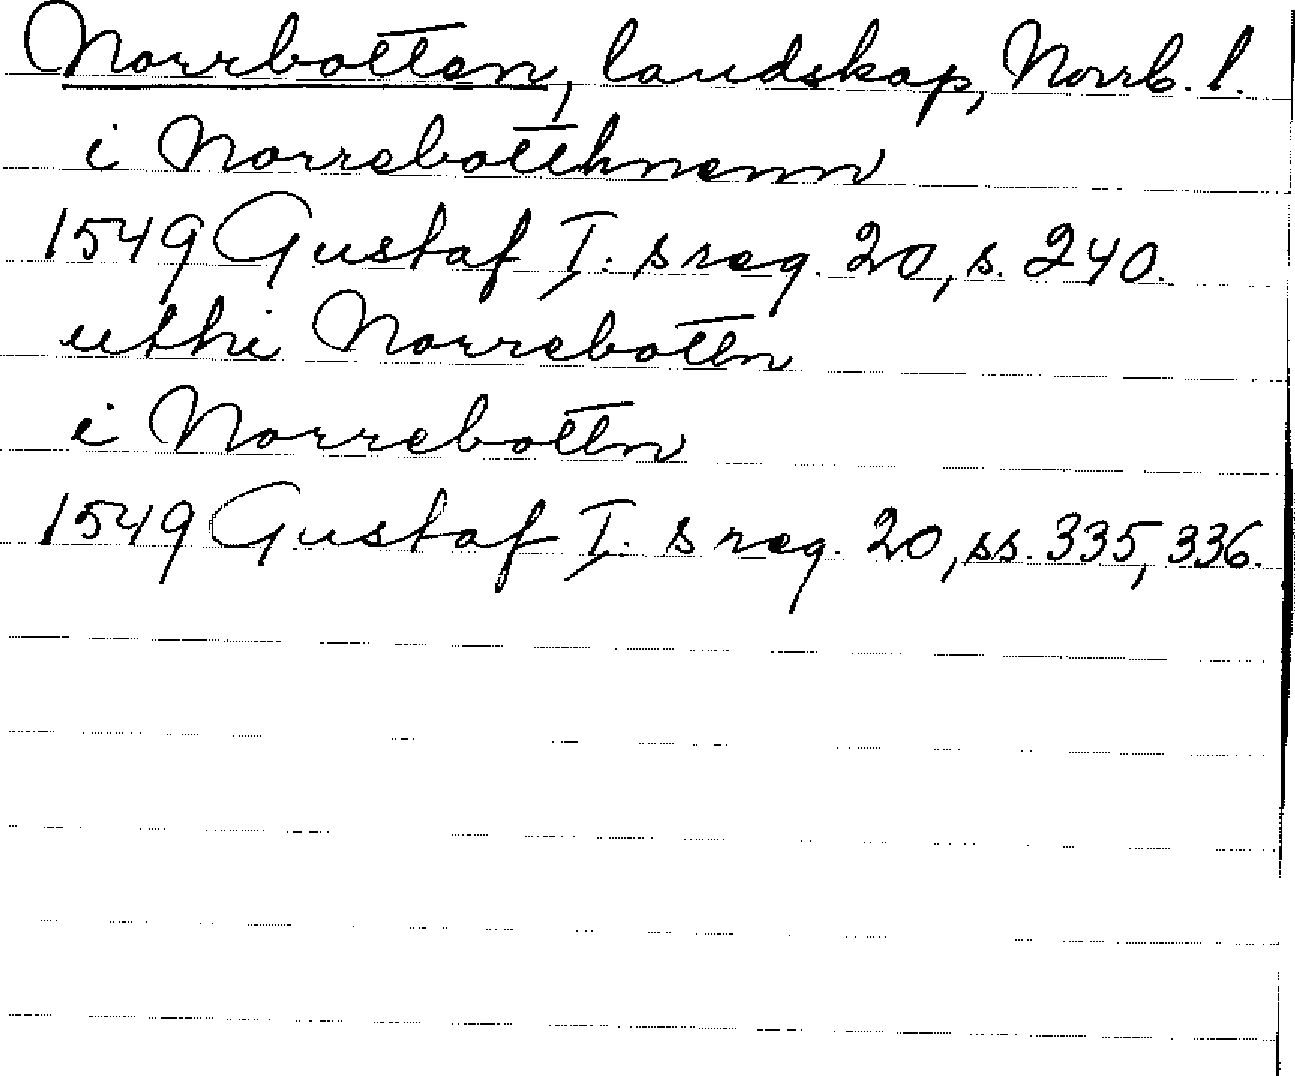 Norrbotten, landskap, Norrb. l.
i Norrebotthnenn
1549 Gustaf I:s reg. 20, s. 240.
uthi Norrebottn
i Norrebottn
1549 Gustaf I:s reg. 20, ss. 335, 336.